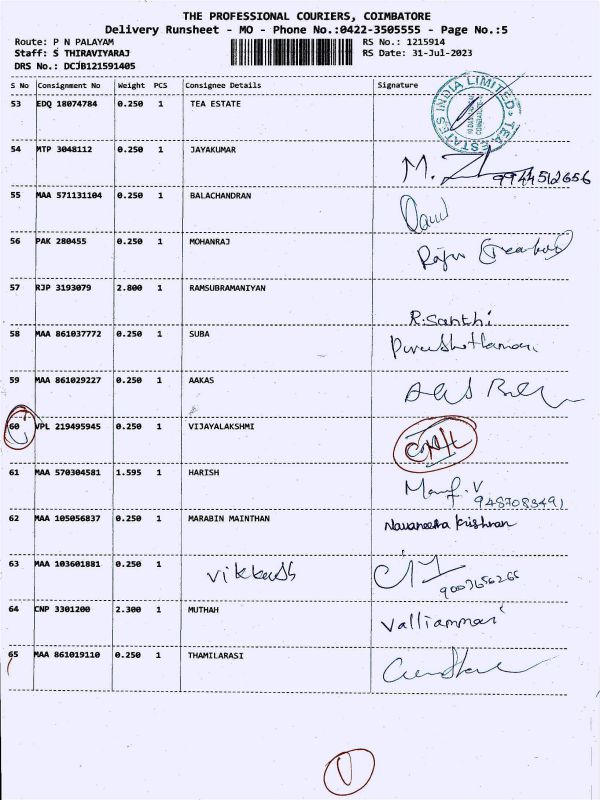 THE PROFESSIONAL COURIERS, COIMBATORE
Delivery Runsheet - MO - Phone No.:0422-3505555 - Page No.:5
Route: P N PALAYAM RS No.: 1215914
Staff: S THIRAVIYARAJ RS Date: 31-Jul-2023
DRS No.: DCJB121591405
S No Consignment No Weight PCS Consignee Details Signature
53 EDQ 18074784 0.250 1 TEA ESTATE
TEA ESTATES INDIA LIMITED
54 MTP 3048112 0.250 1 JAYAKUMAR
M. 9944512656
55 MAA 571131104 0.250 1 BALACHANDRAN
56 PAK 280455 0.250 1 MOHANRAJ
57 RJP 3193079 2.800 1 RAMSUBRAMANIYAN
R.Santhi
58 MAA 861037772 0.250 1 SUBA
59 MAA 861029227 0.250 1 AAKAS
60 VPL 219495945 0.250 1 VIJAYALAKSHMI
61 MAA 570304581 1.595 1 HARISH
9487083491
62 MAA 105056837 0.250 1 MARABIN MAINTHAN
Navaneetha Krishnan
63 MAA 103601881 0.250 1
64 CNP 3301200 2.300 1 MUTHAH
Valliammai
65 MAA 861019110 0.250 1 THAMILARASI